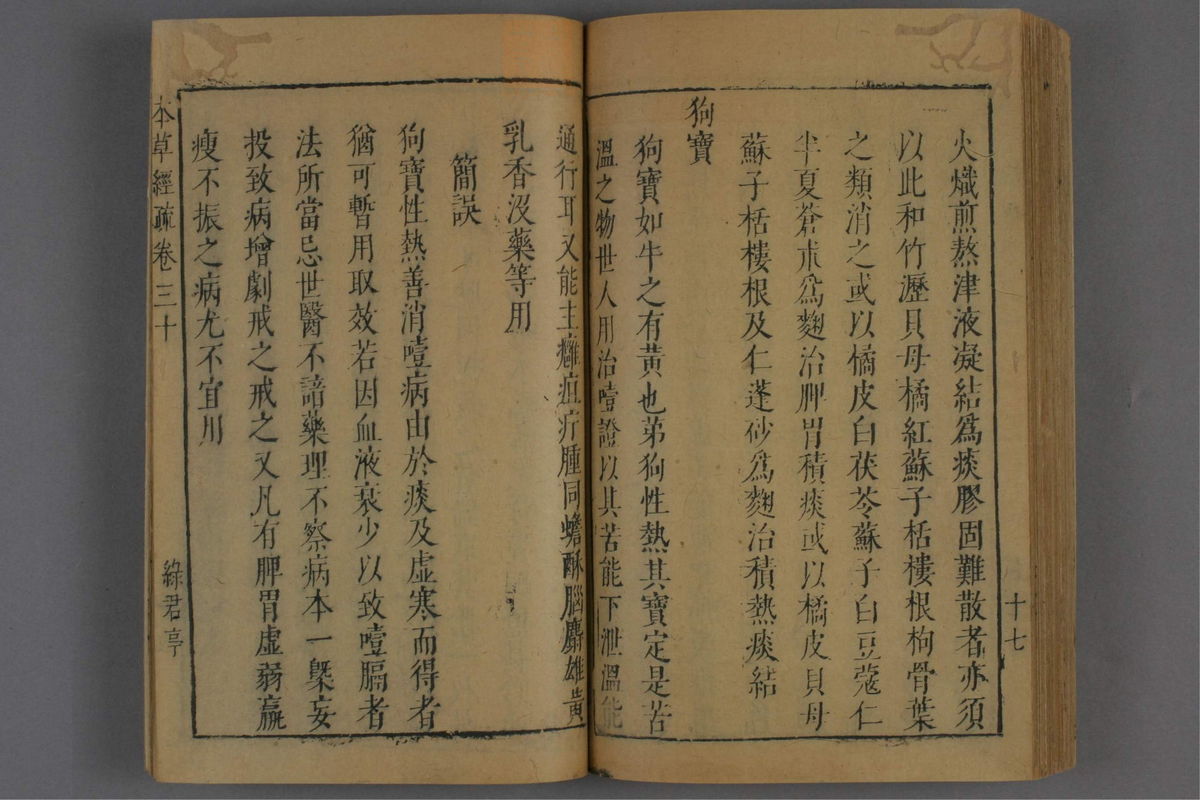 十七
火熾煎熬津液凝結爲痰膠固難散者亦須
以此和竹瀝貝母橘紅蘇子栝樓根枸骨葉
之類消之或以橘皮白茯苓蘇子白豆蔻仁
半夏蒼朮爲麴治脾胃積痰或以橘皮貝母
蘇子栝樓根及仁蓬砂爲麴治積熱痰結
狗寶
狗寶如牛之有黃也苐狗性熱其寶定是苦
溫之物世人用治噎證以其苦能下泄溫能
通行耳又能主癰疽疔腫同蟾酥腦麝雄黃
乳香沒藥等用
簡誤
狗寶性熱善消噎病由於痰及虛寒而得者
猶可暫用取效若因血液衰少以致噎膈者
法所當忌世醫不諳藥理不察病本一槩妄
投致病增劇戒之戒之又凡有脾胃虛弱羸
瘦不振之病尤不宜用
本草經疏卷三十
綠君亭